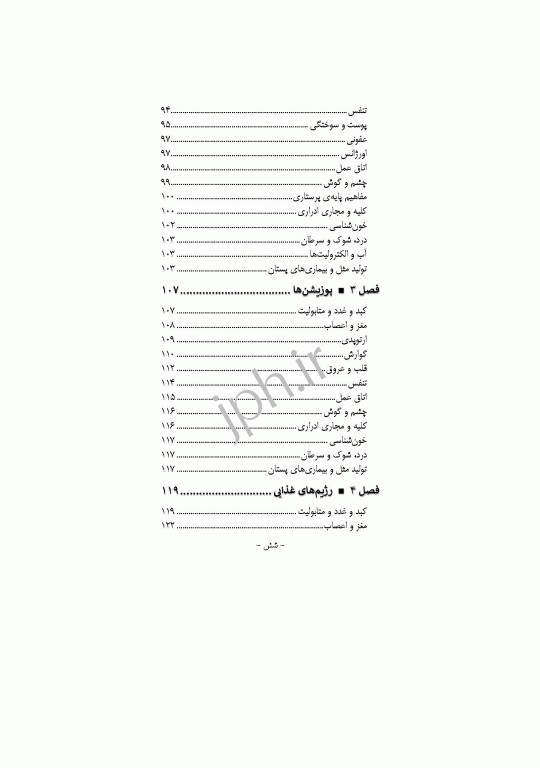 تنفس ۹۴
پوست و سوختگی ۹۵
عفونی ۹۷
اورژانس ۹۷
اتاق عمل ۹۸
چشم و گوش ۹۹
مفاهیم پایه‌ی پرستاری ۱۰۰
کلیه و مجاری ادراری ۱۰۰
خون‌شناسی ۱۰۲
درد، شوک و سرطان ۱۰۳
آب و الکترولیت‌ها ۱۰۳
تولید مثل و بیماری‌های پستان ۱۰۳
فصل ۳ ■ پوزیشن‌ها ۱۰۷
کبد و غدد و متابولیت ۱۰۷
مغز و اعصاب ۱۰۸
ارتوپدی ۱۰۹
گوارش ۱۱۰
قلب و عروق ۱۱۲
تنفس ۱۱۴
اتاق عمل ۱۱۵
چشم و گوش ۱۱۶
کلیه و مجاری ادراری ۱۱۶
خون‌شناسی ۱۱۷
درد، شوک و سرطان ۱۱۷
تولید مثل و بیماری‌های پستان ۱۱۷
فصل ۴ ■ رژیم‌های غذایی ۱۱۹
کبد و غدد و متابولیت ۱۱۹
مغز و اعصاب ۱۲۲
- شش -
jph.ir